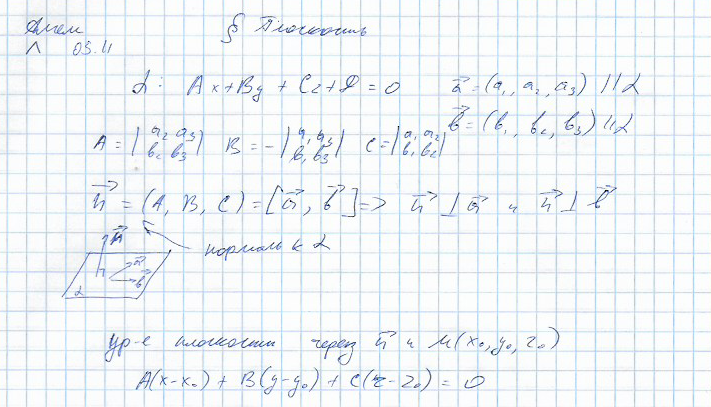 Алгем § Плоскость
Л 03.11
α: Ax+By+Cz+D=0 a⃗=(a₁, a₂, a₃) ∥ α
b⃗=(b₁, b₂, b₃) ∥ α
A = |a₂ a₃; b₂ b₃| B = -|a₁ a₃; b₁ b₃| C = |a₁ a₂; b₁ b₂|
n⃗ = (A, B, C) = [a⃗, b⃗] => n⃗ ⊥ a⃗ и n⃗ ⊥ b⃗
нормаль к α
n⃗
a⃗
b⃗
α
ур-е плоскости через n⃗ и M(x₀, y₀, z₀)
A(x-x₀) + B(y-y₀) + C(z-z₀) = 0